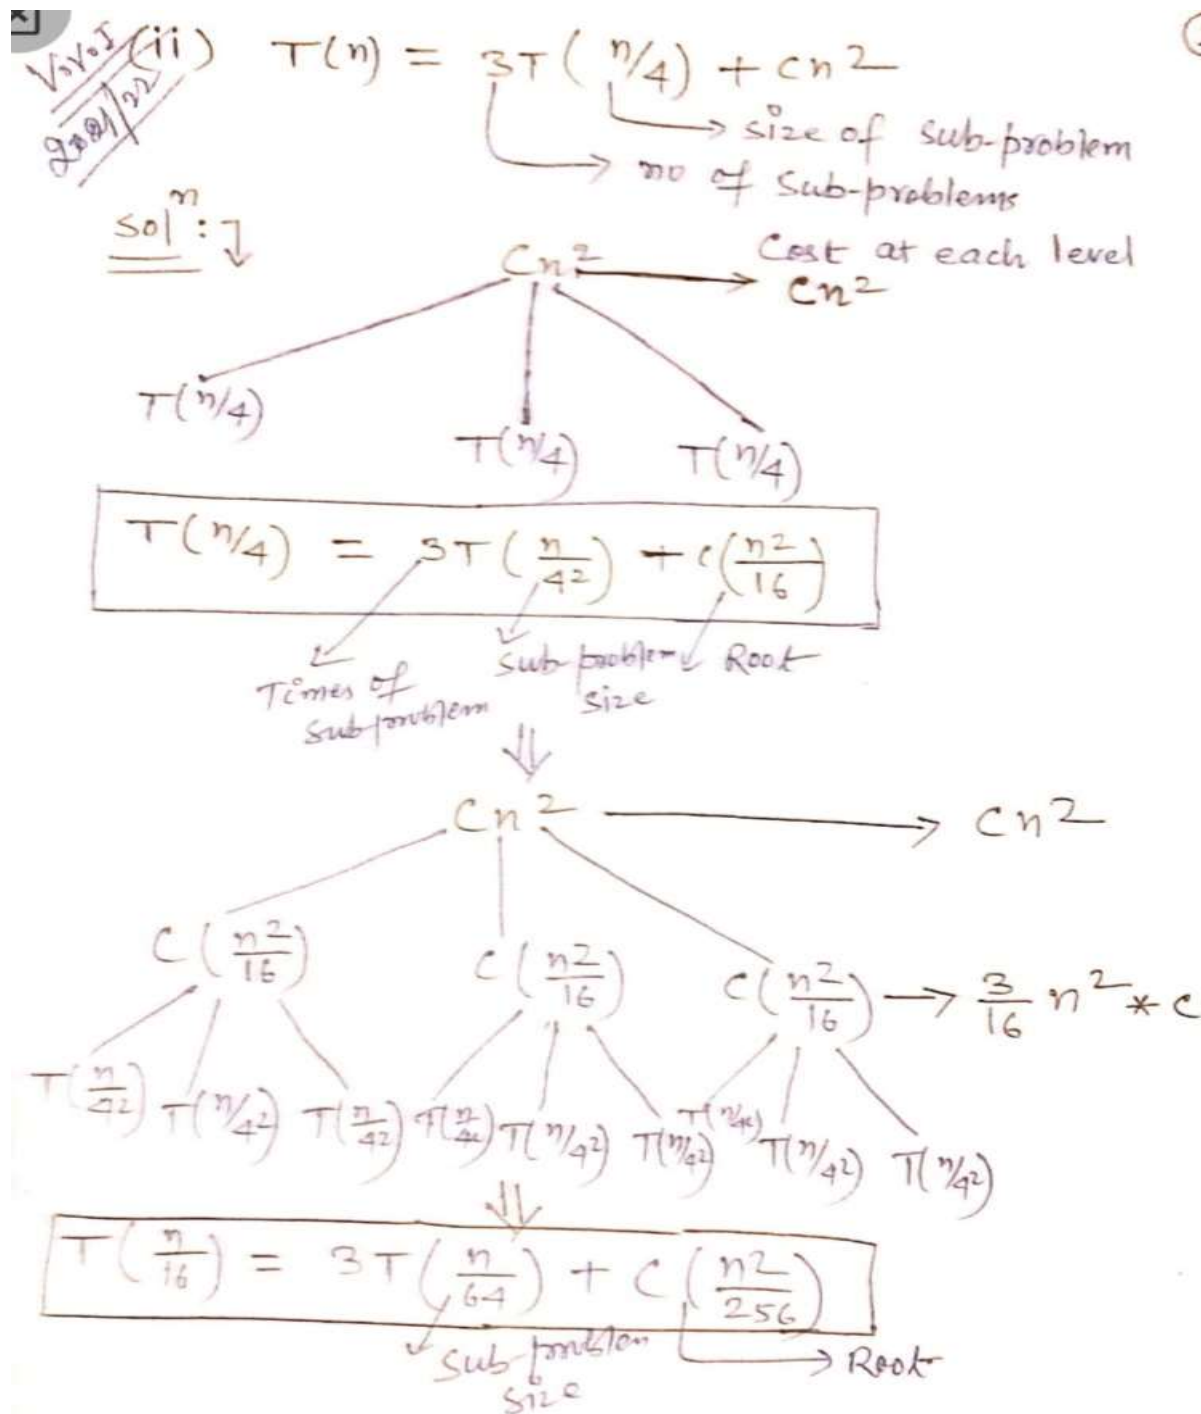 (ii) T(n) = 3T(n/4) + cn2
size of sub-problem
no of Sub-problems
2021/22
soln:
Cost at each level
Cn2 → cn2
T(n/4) T(n/4) T(n/4)
T(n/4) = 3T(n/42) + c(n2/16)
Times of Subproblem
Sub problem size
Root
Cn2 → cn2
C(n2/16) C(n2/16) C(n2/16) → 3/16 n2 * c
T(n/42) T(n/42) T(n/42) T(n/42) T(n/42) T(n/42) T(n/42) T(n/42) T(n/42)
T(n/16) = 3T(n/64) + C(n2/256)
Sub-problem size
Root